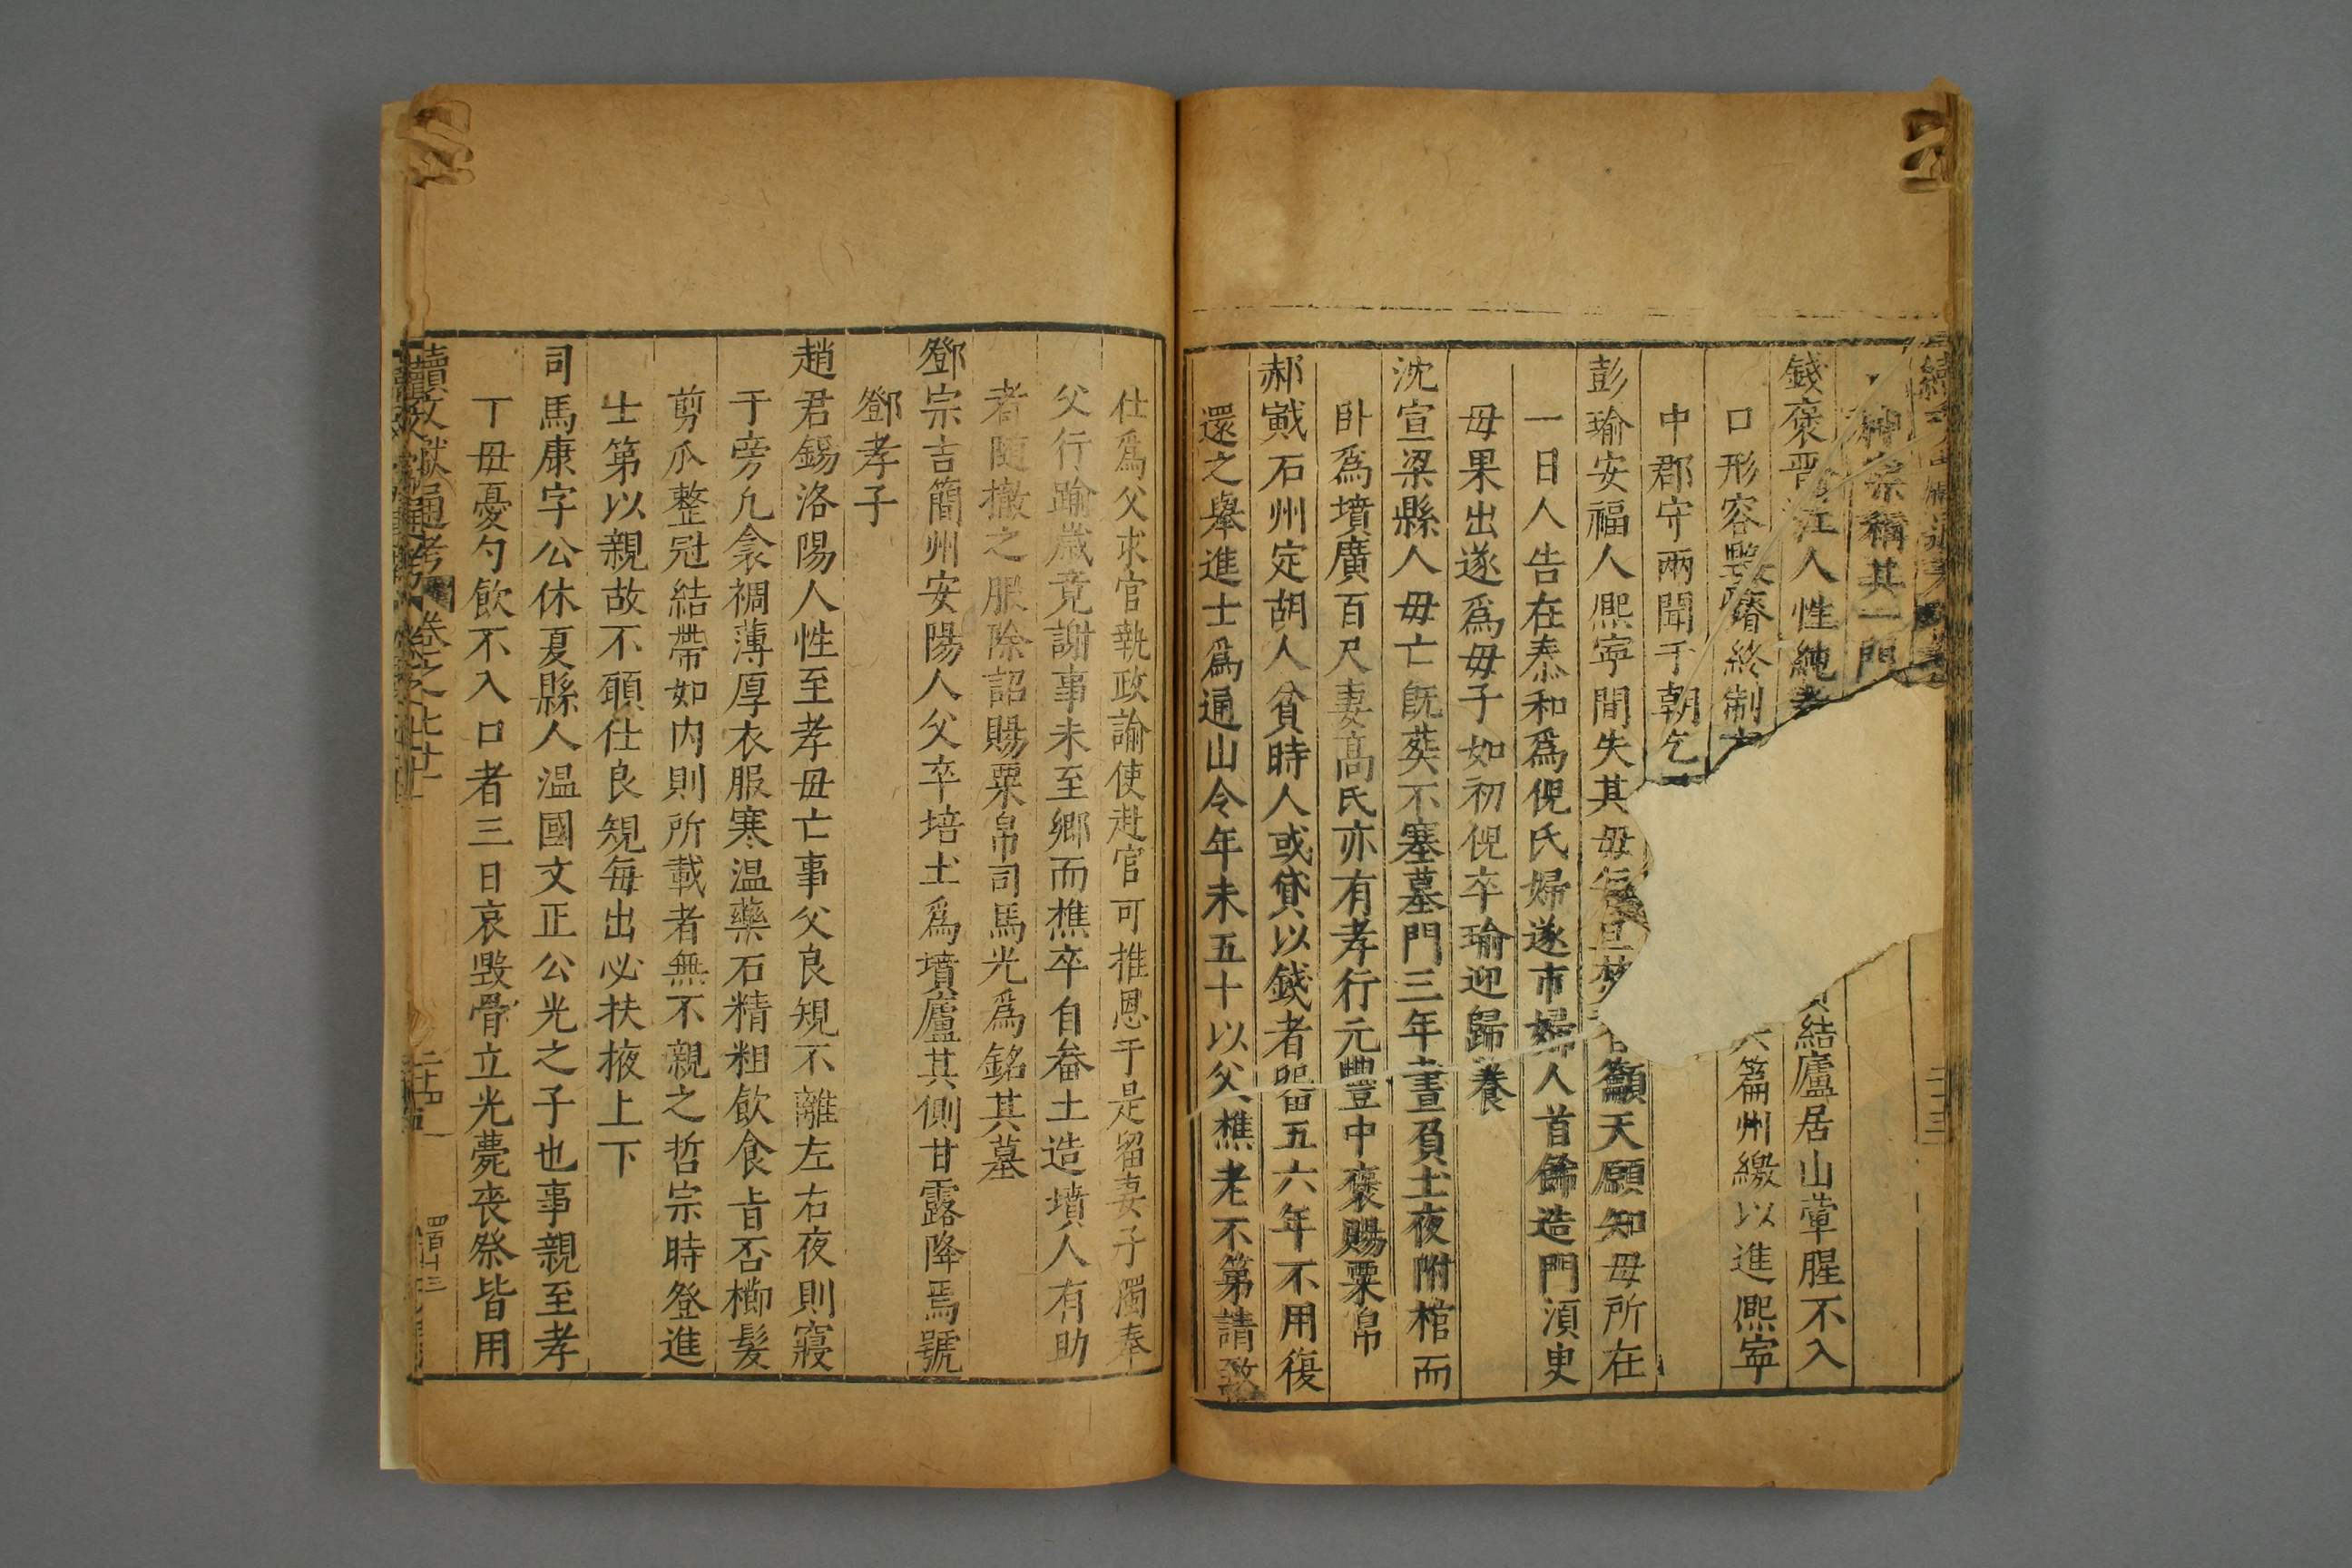 神宗稱其一門
錢褒晋江人性純孝結廬居山葷腥不入
口形容毀瘠終制篇州繳以進熙寧
中郡守兩聞于朝乞
彭瑜安福人熙寧間失其毋每旦焚香籲天願知毋所在
一日人告在泰和爲倪氏婦遂市婦人首餙造門湏臾
毋果出遂爲毋子如初倪卒瑜迎歸養
沈宣梁縣人毋亡旣葬不塞墓門三年晝負土夜附棺而
卧爲墳廣百尺妻高氏亦有孝行元豐中褒賜粟帛
郝戭石州定胡人貧時人或貸以錢者緡五六年不用復
還之舉進士爲通山令年未五十以父樵老不第請致
仕爲父求官執政諭使赴官可推恩于是留妻子濁奉
父行踰歲竟謝事未至鄉而樵卒自畚土造墳人有助
者随撤之服除詔賜粟帛司馬光爲銘其墓
鄧宗吉簡州安陽人父卒培土爲墳廬其側甘露降焉號
鄧孝子
趙君錫洛陽人性至孝毋亡事父良規不離左右夜則寢
于旁凡衾裯薄厚衣服寒温藥石精粗飲食旨否櫛髮
剪爪整冠結帶如内則所載者無不親之哲宗時登進
士第以親故不願仕良規每出必扶掖上下
司馬康字公休夏縣人温國文正公光之子也事親至孝
丁毋憂勺飲不入口者三日哀毀骨立光薨喪祭皆用
續文獻通考 卷之七十一 二十四 四百廿三